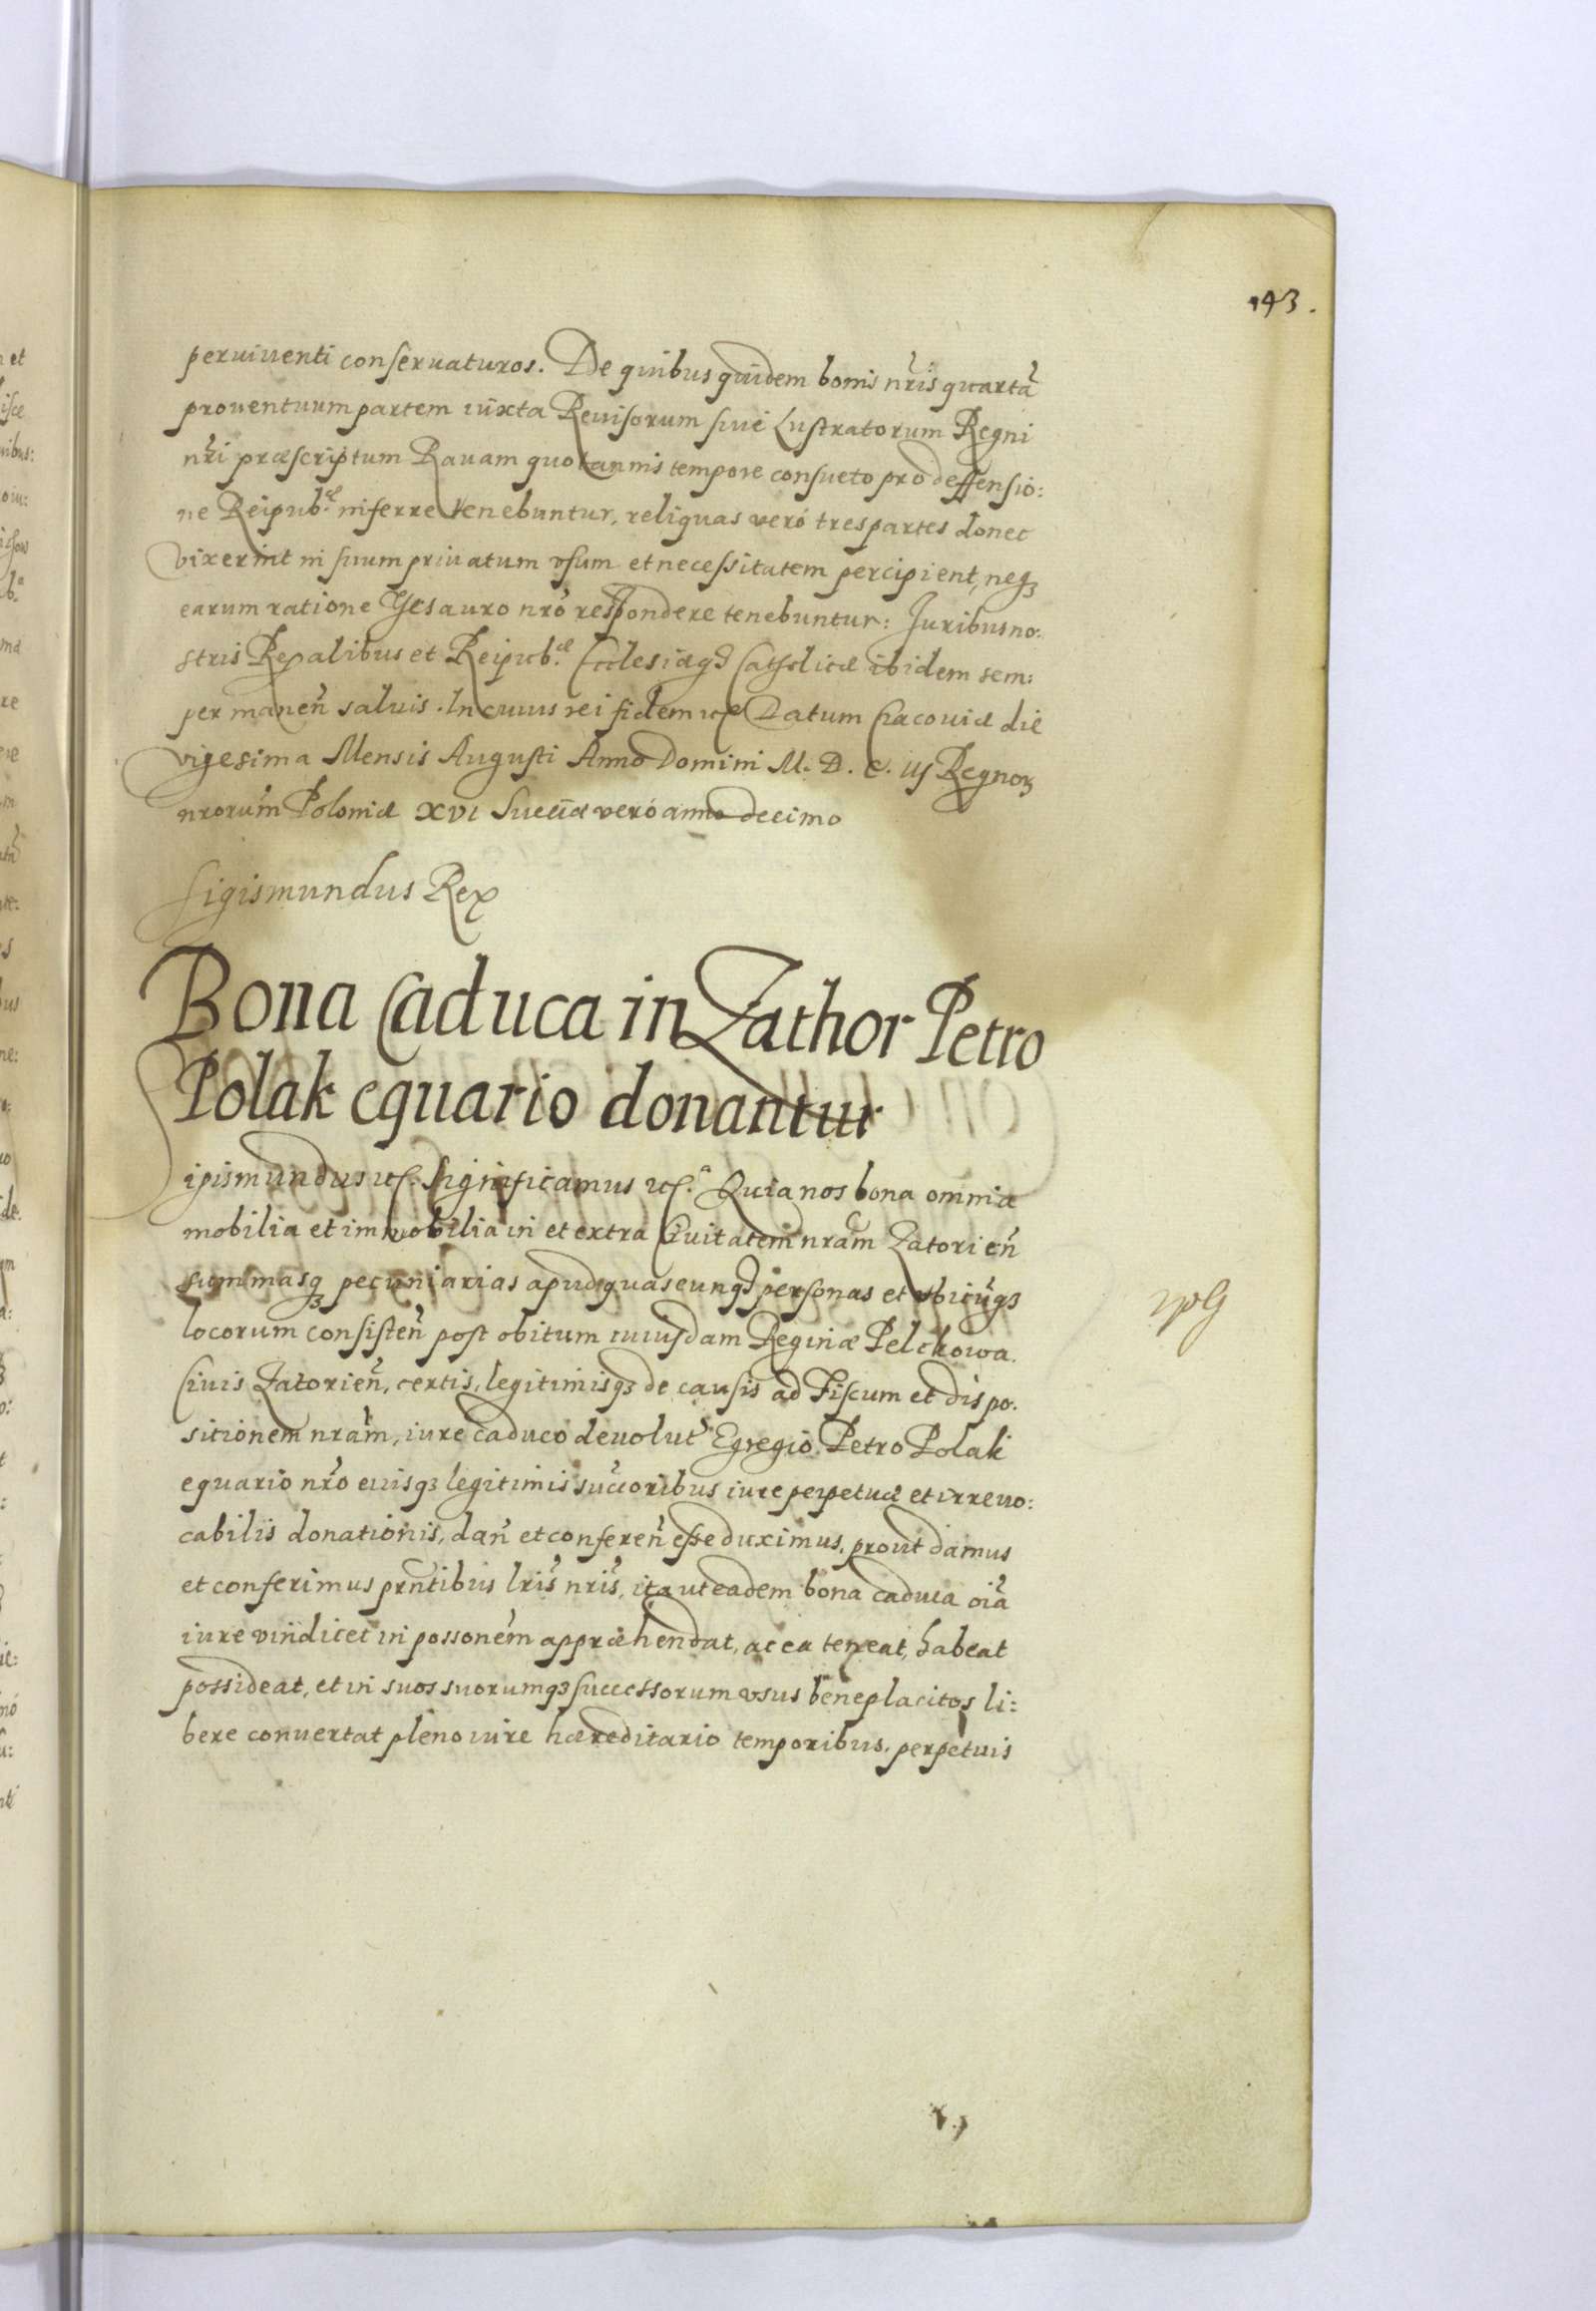 193.
peruiuenti conseruaturos. De quibus quidem bonis nr̃is quartã
prouentuum partem iuxta Reuisorum siue Lustratorum Regni
nr̃i præscriptum Rauam quotannis tempore consueto pro deffensio:
ne Reipub.æ inferre tenebuntur, reliquas veró tres partes donec
vixerint in suum priuatum vsum et necessitatem percipient, neqȝ
earum ratione Thesauro nr̃o respondere tenebuntur: Juribus no:
stris Regalibus et Reipub.æ Ecclesiæqȝ Catholicæ ibidem sem:
per maneñ saluis. In cuius rei fidem etc. Datum Cracouiæ die
vigesima Mensis Augusti Anno Domini M. D. C. iij Regnoꝝ
nrorum̃ Poloniæ XVI Sueciæ veró anno decimo
Sigismundus Rex
Bona Caduca in Zathor Petro
Polak equario donantur
Sigismundus etc. Significamus etc. Quia nos bona omnia
mobilia et immobilia in et extra Ciuitatem nram̃ Zatorieñ
summasqȝ pecuniarias apud quascunqȝ personas et vbicũqȝ
locorum consisteñ post obitum cuiusdam Reginæ Pelckowa.
Ciuis Zatorieñ, certis, legitimisqȝ de causis ad Fiscum et dispo.
sitionem nram̃, iure caduco deuolut̃ Egregio Petro Polak
equario nr̃o eiusqȝ legitimis succ̃oribus iure perpetuæ et irreuo:
cabilis donationis, dañ et confereñ esse duximus, prout damus
et conferimus prñtibus lr̃is nr̃is, ita ut eadem bona caduca oĩa
iure vindicet in possonem̃ appræhendat, ac ea teneat, habeat
possideat, et in suos suorumqȝ successorum vsus beneplacitos li:
bere conuertat pleno iure hæreditario temporibus perpetuis